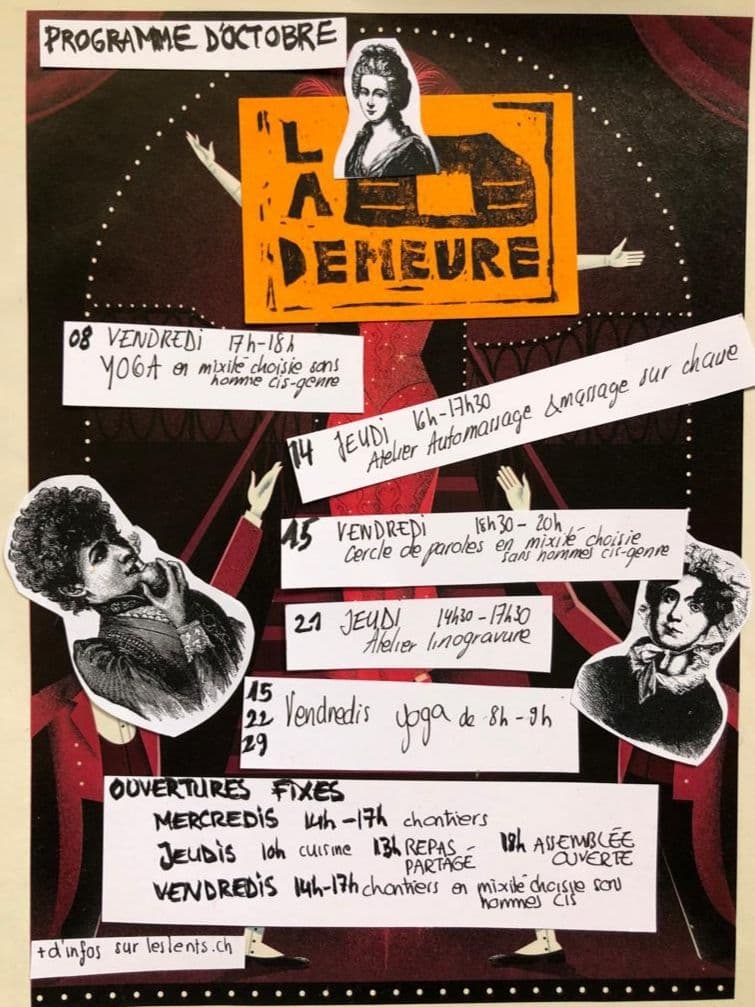 PROGRAMME D'OCTOBRE
LA
DEMEURE
08 VENDREDI 17h-18h
YOGA en mixité choisie sans
homme cis-genre
14 JEUDI 16h-17h30
Atelier Automassage & massage sur chaise
15 VENDREDI 18h30-20h
Cercle de paroles en mixité choisie
sans hommes cis-genre
21 JEUDI 14h30-17h30
Atelier linogravure
15
22 Vendredis yoga de 8h-9h
29
OUVERTURES FIXES
MERCREDIS 14h-17h chantiers
JEUDIS 10h cuisine 13h REPAS 18h ASSEMBLÉE
PARTAGÉ OUVERTE
VENDREDIS 14h-17h chantiers en mixité choisie sans
hommes cis
+ d'infos sur leslents.ch